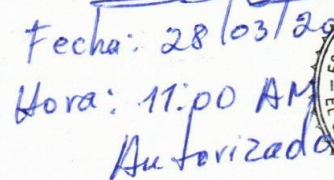 Fecha: 28/03/20
Hora: 11:00 AM
Autorizado